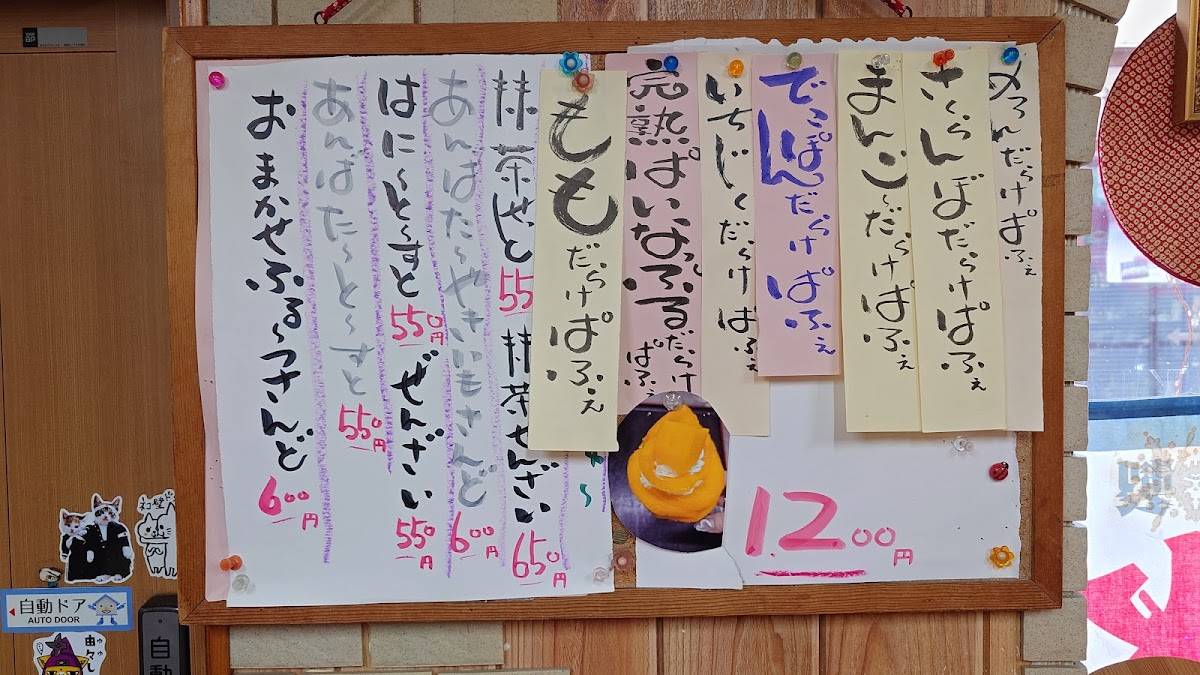 めろんだらけぱふぇ
さくらんぼだらけぱふぇ
まんご〜だらけぱふぇ
でこぽんだらけぱふぇ
いちじくだらけぱふぇ
完熟ぱいなっふるだらけぱふぇ
ももだらけぱふぇ
1.200円
抹茶せっと
55
抹茶ぜんざい
650円
あんばた〜やきいもさんど
600円
はに〜と〜すと
550円
ぜんざい
550円
あんばた〜と〜すと
550円
おまかせふる〜つさんど
600円
自動ドア
AUTO DOOR
自動